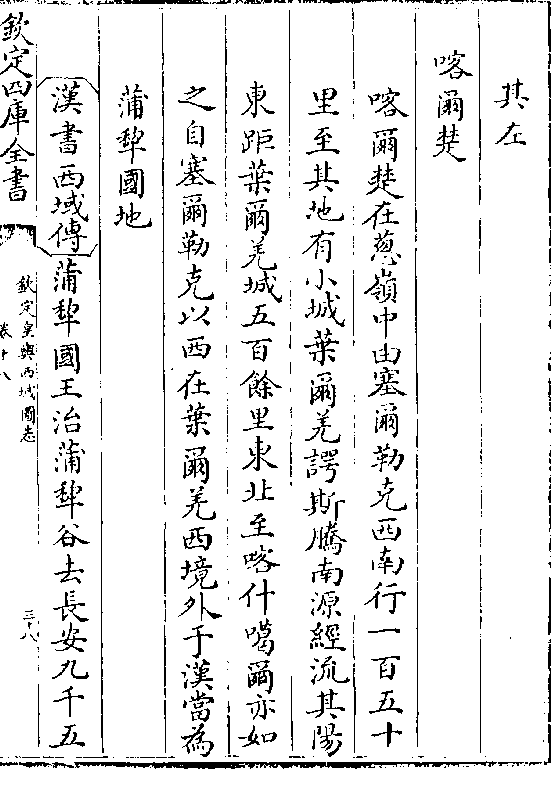 其左
喀爾楚
喀爾楚在蔥嶺中由塞爾勒克西南行一百五十
里至其地有小城葉爾羌諤斯騰南源經流其陽
東距葉爾羌城五百餘里東北至喀什噶爾亦如
之自塞爾勒克以西在葉爾羌西境外于漢當為
蒲犂國地
漢書西域傳蒲犂國王治蒲犂谷去長安九千五
欽定四庫全書
欽定皇輿西域圖志
卷十八
三十八